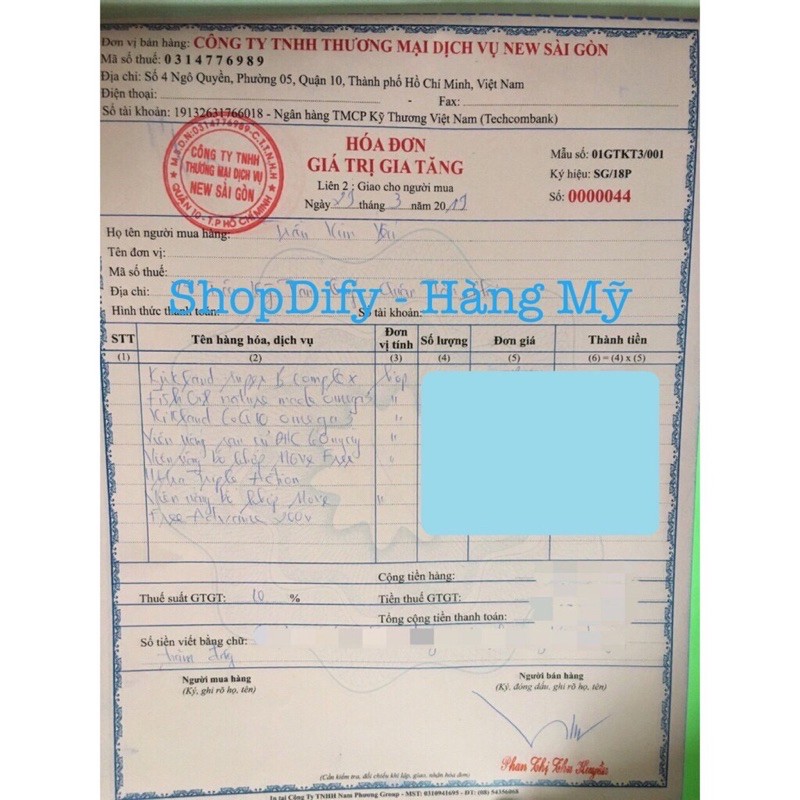 Đơn vị bán hàng: CÔNG TY TNHH THƯƠNG MẠI DỊCH VỤ NEW SÀI GÒN
Mã số thuế: 0314776989
Địa chỉ: Số 4 Ngô Quyền, Phường 05, Quận 10, Thành phố Hồ Chí Minh, Việt Nam
Điện thoại: - Fax:
Số tài khoản: 19132631766018 - Ngân hàng TMCP Kỹ Thương Việt Nam (Techcombank)
M.S.D.N:0314776989-C.T.T.N.H.H
CÔNG TY TNHH
THƯƠNG MẠI DỊCH VỤ
NEW SÀI GÒN
QUẬN 10-T.P HỒ CHÍ MINH
HÓA ĐƠN
GIÁ TRỊ GIA TĂNG
Liên 2 : Giao cho người mua
Ngày 29 tháng 3 năm 2019
Mẫu số: 01GTKT3/001
Ký hiệu: SG/18P
Số: 0000044
Họ tên người mua hàng:
Tên đơn vị:
Mã số thuế:
Địa chỉ:
ShopDify - Hàng Mỹ
Hình thức thanh toán: Số tài khoản:
STT Tên hàng hóa, dịch vụ Đơn vị tính Số lượng Đơn giá Thành tiền
(1) (2) (3) (4) (5) (6) = (4) x (5)
Kirkland super B complex hộp
Fish Oil nature made omega 3 "
Kirkland CoQ10 omega 3 "
Viên uống DHC "
Viên uống bổ khớp Move Free "
Ultra Triple Action
Viên uống bổ khớp Move "
Free Advance 200v
Cộng tiền hàng:
Thuế suất GTGT: 10 % Tiền thuế GTGT:
Tổng cộng tiền thanh toán:
Số tiền viết bằng chữ:
Người mua hàng
(Ký, ghi rõ họ, tên)
Người bán hàng
(Ký, đóng dấu, ghi rõ họ, tên)
Phan Thị Thu
(Cần kiểm tra, đối chiếu khi lập, giao, nhận hóa đơn)
In tại Công Ty TNHH Nam Phương Group - MST: 0310941695 - ĐT: (08) 54356868